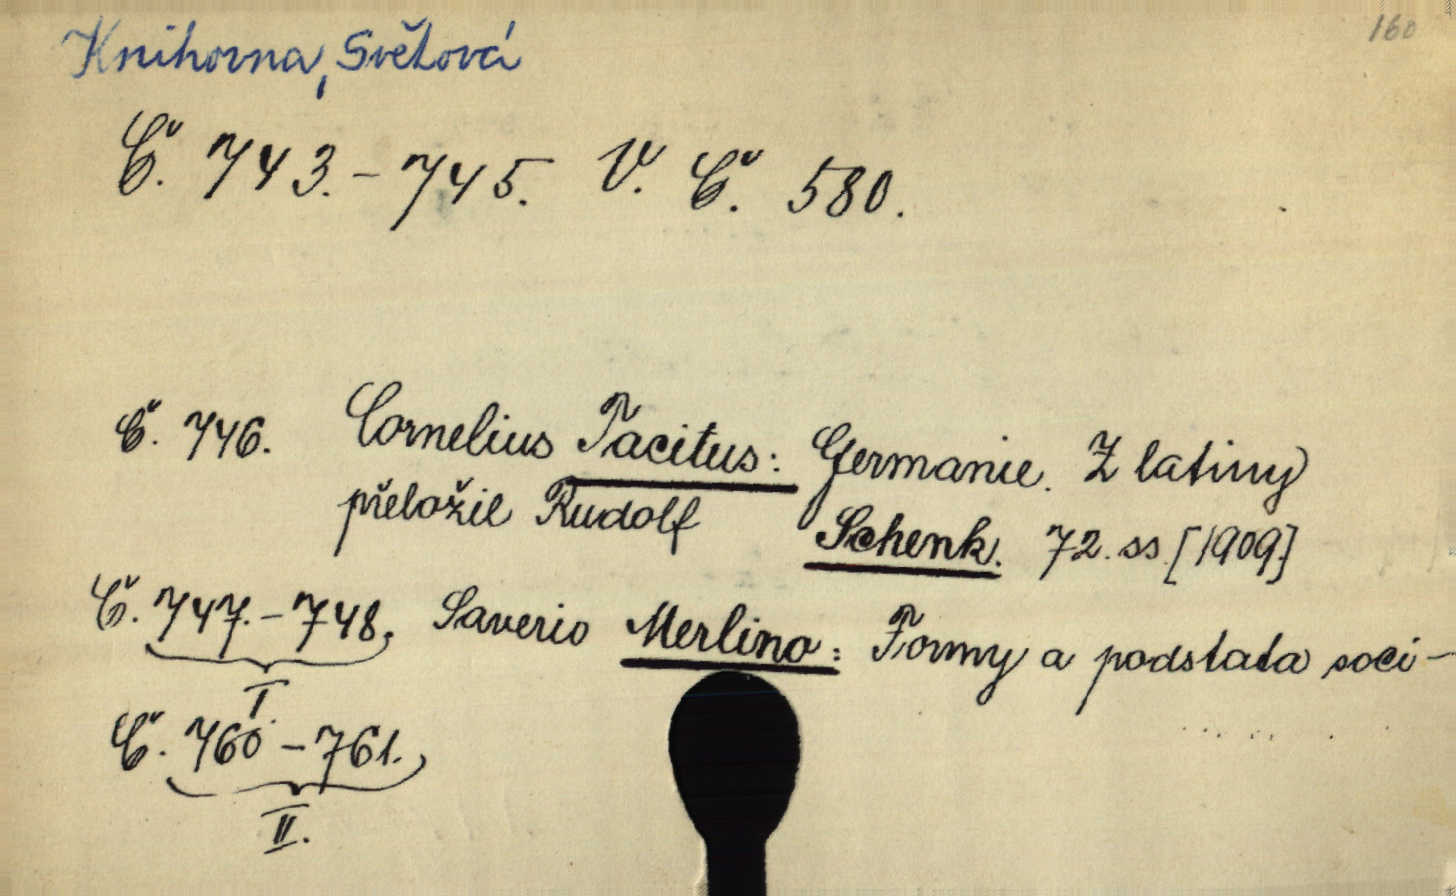 160
Knihovna, Světová
Č. 743.-745. V. Č. 580.
Č. 746. Cornelius Tacitus: Germanie. Z latiny
přeložil Rudolf Schenk. 72. ss. [1909.]
Č. 747.-748. Saverio Merlino: Formy a podstata soci-
I.
Č. 760-761.
II.